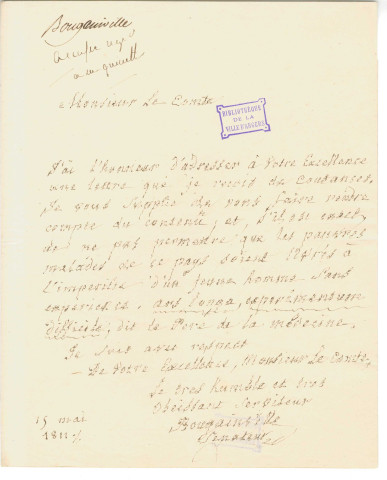 Bougainville
Monsieur Le Comte
BIBLIOTHEQUE
DE LA
VILLE D'ANGERS
J'ai l'honneur d'adresser à votre Excellence
une lettre que je reçois de Coutances.
Je vous supplie de vous faire rendre
compte du contenu, et, s'il est exact,
de ne pas permettre que les pauvres
malades de ce pays soient livrés à
l'imperitie d'un jeune homme sans
experience, ars longa, experimentum
difficile, dit le Pere de la medecine.
Je suis avec respect
De votre Excellence, Monsieur Le Comte,
le tres humble et tres
obeissant serviteur
Bougainville
Senateur
15 mai